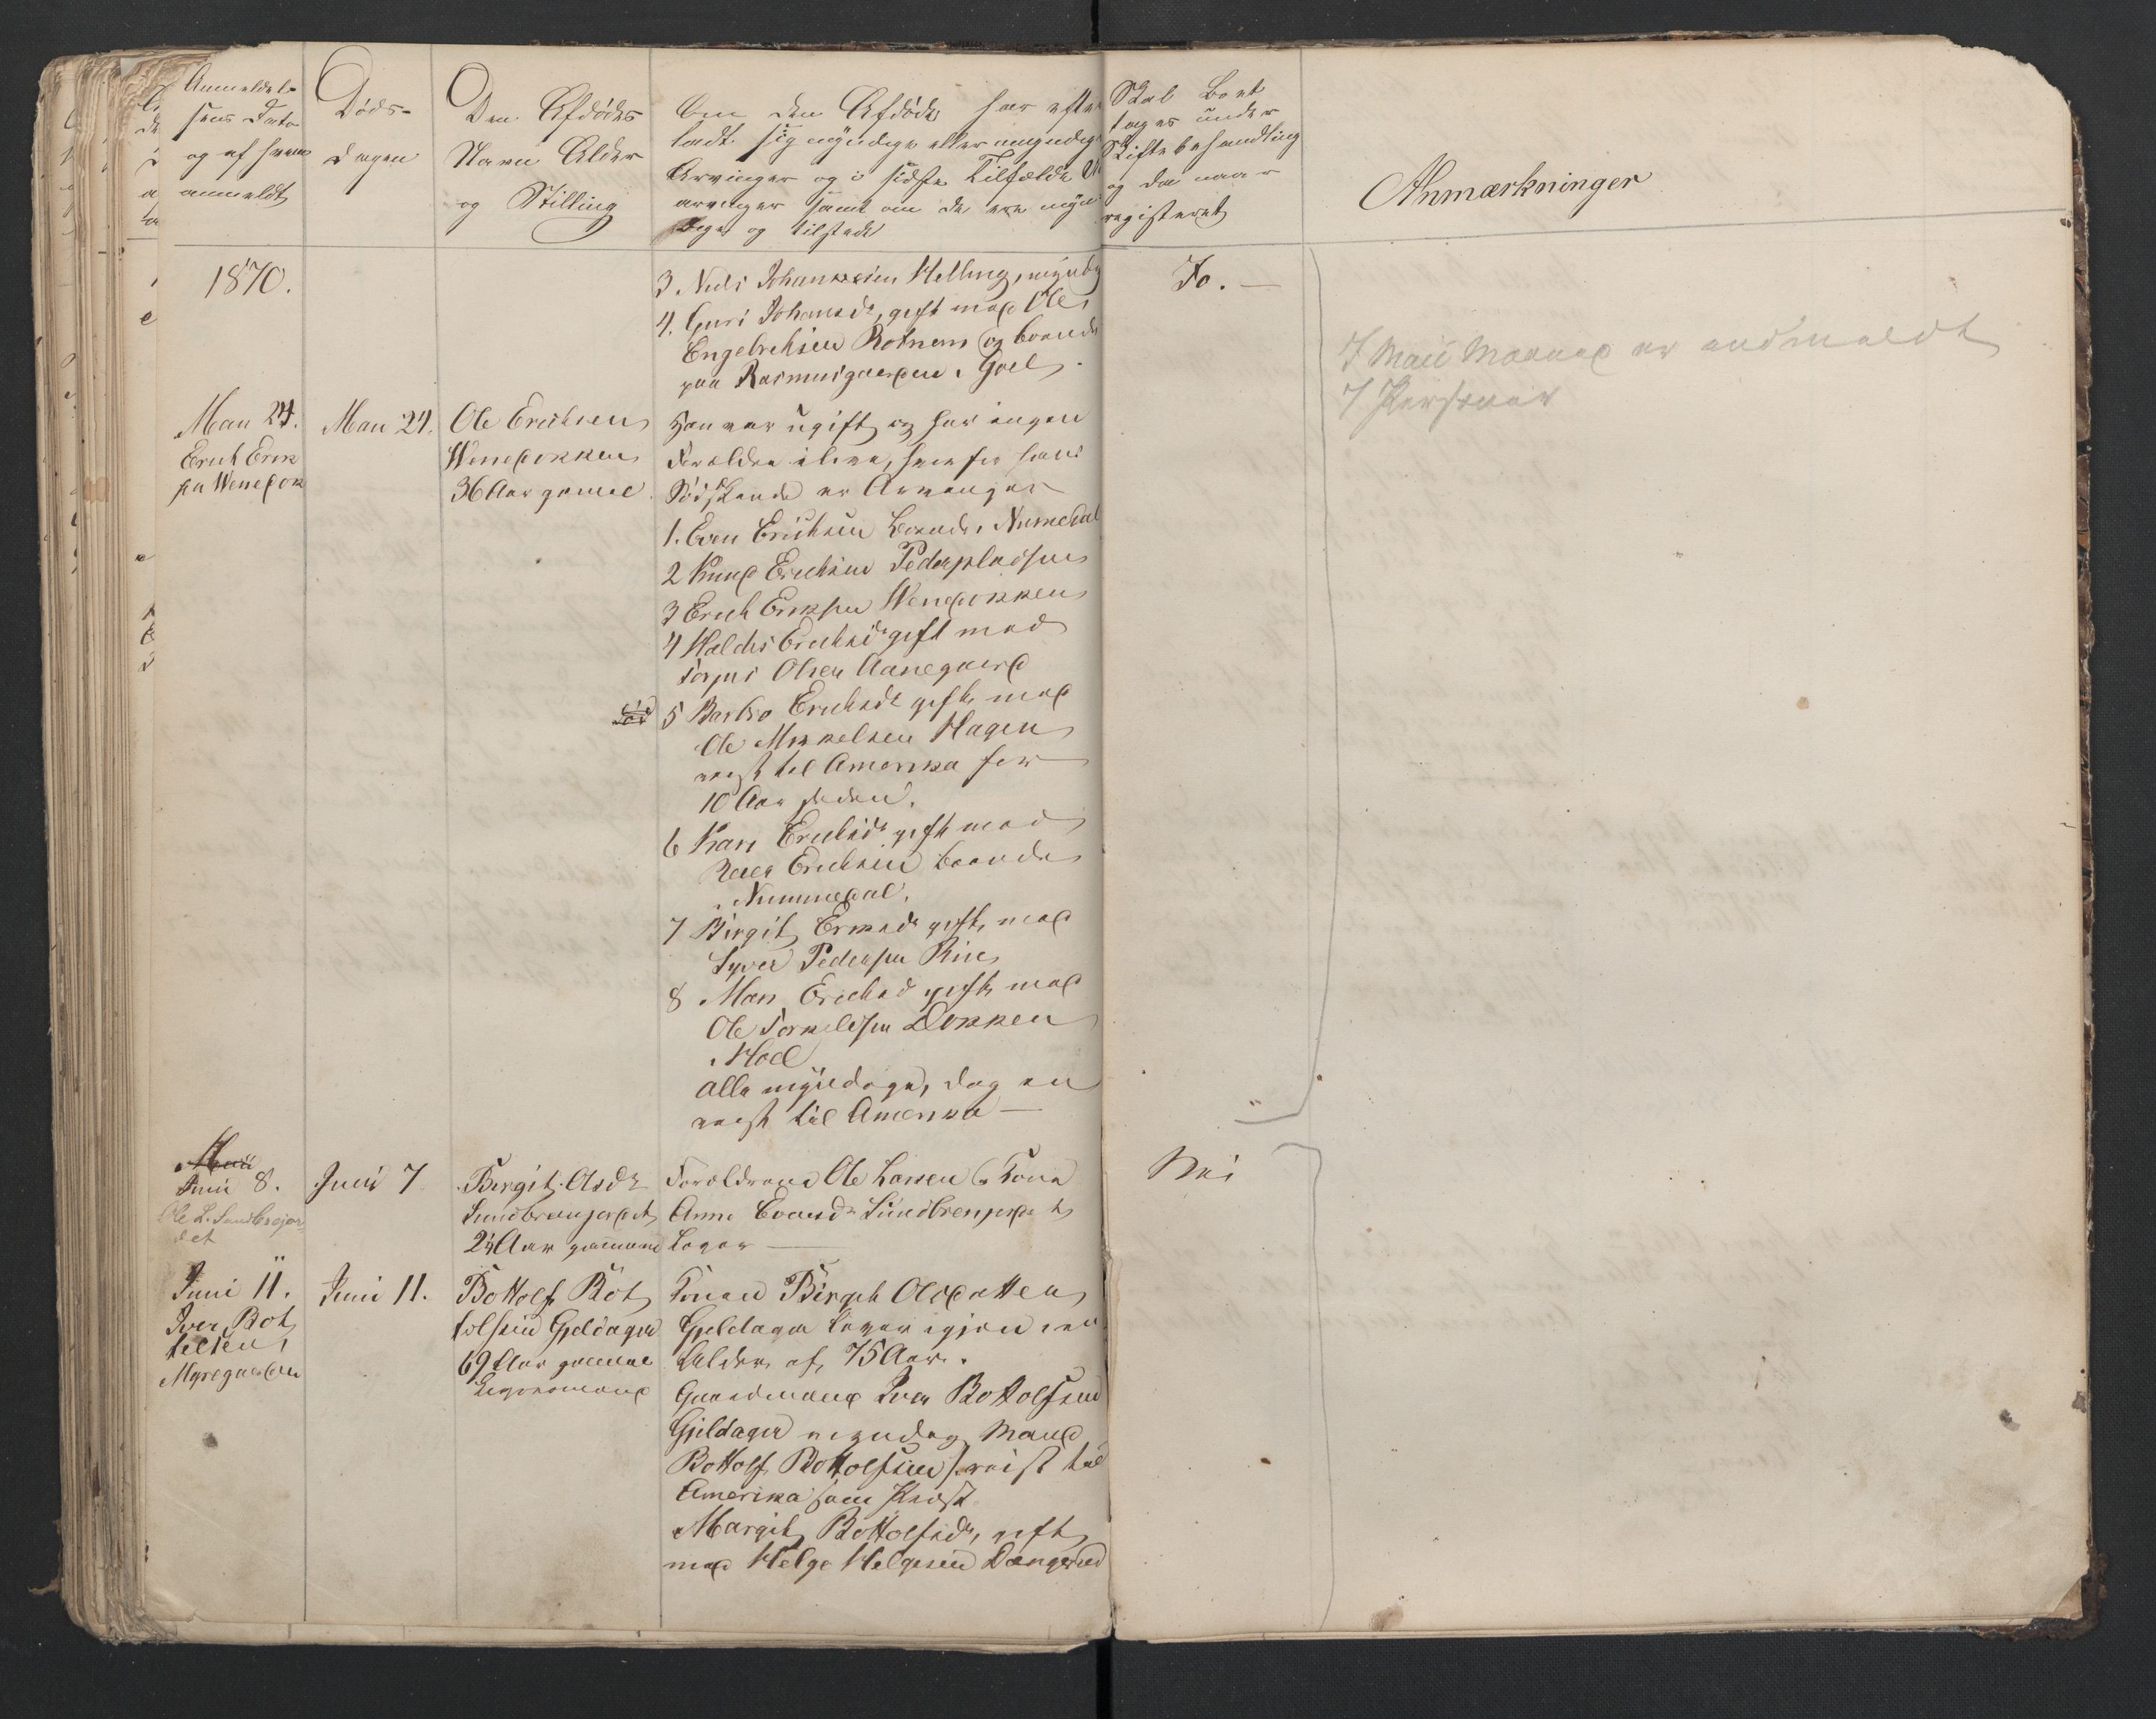 Anmeldel-
sens Dato
og af hvem
anmeldt
Døds-
dagen
Den Afdødes
Navn Alder
og Stilling
Om den Afdøde har efter
ladt sig myndige eller umyndige
Arvinger og i sidste Tilfælde
arvinger samt om de ere myn
dige og tilstede
Skal Boet
tages under
Skiftebehandling
og da naar
registeret
Anmærkninger
1870.
3. Nils Johannesen Helling, myndig
4. Guri Johansdr, gift med Ole
Engebrethsen Rotnem og boende
paa Rasmusgaarden i Gol
Jo. —
I Mai Maaned er anmeldt
7 Personer
Mai 24.
Erich Erik
sen Wenedok
Mai 24.
Ole Erichsen
Wenedokken
36 Aar gamel
Han var ugift og har ingen
Forældre ilive, hvorfor hans
Sødskende er Arvinger
1. Even Erichsen boende i Numedal
2 Knud Erichsen Pederpladsen
3 Erich Eriksen Wenedokken
4 Haldis Erichsdr gift med
Torjus Olsen Aanegaard
død 5 Barbro Erichsdr gift med
Ole Mikkelsen Hagen
reist til Amerika for
10 Aar siden.
6 Kari Erichsdr gift med
Erichsen boende
i Nummedal.
7 Birgit Eriksdr gift med
Syver Pedersen Rue
8 Mari Erichsd gift med
Ole Torkelsen Dokken
i Hol
alle myndige, dog en
reist til Amerika —
Mai
Juni 8.
Ole L. Sundbrejor
det
Juni 7
Birgit Olsdr
Sundbrenjordet
24 Aar gammel
Forældrene Ole Larsen & Kona
Anne Evensdr Sundbrenjordet
Lever —
Nei
Juni 11.
Iver Bot
tolsen
Myregaarden
Juni 11.
Bottolf Bot
tolfsen Gjeldager
69 Aar gammel
Legdsmand
Konen Birgit Olsdatter
Gjeldager lever igjen i en
Alder af 75 Aar.
Gaardmand Iver Bottolfsen
Gjeldager myndig Mand
Bottolf Bottolfsen reist til
Amerika som Præst
Margit Bottolfsdr, gift
med Helge Helgesen Dængerud